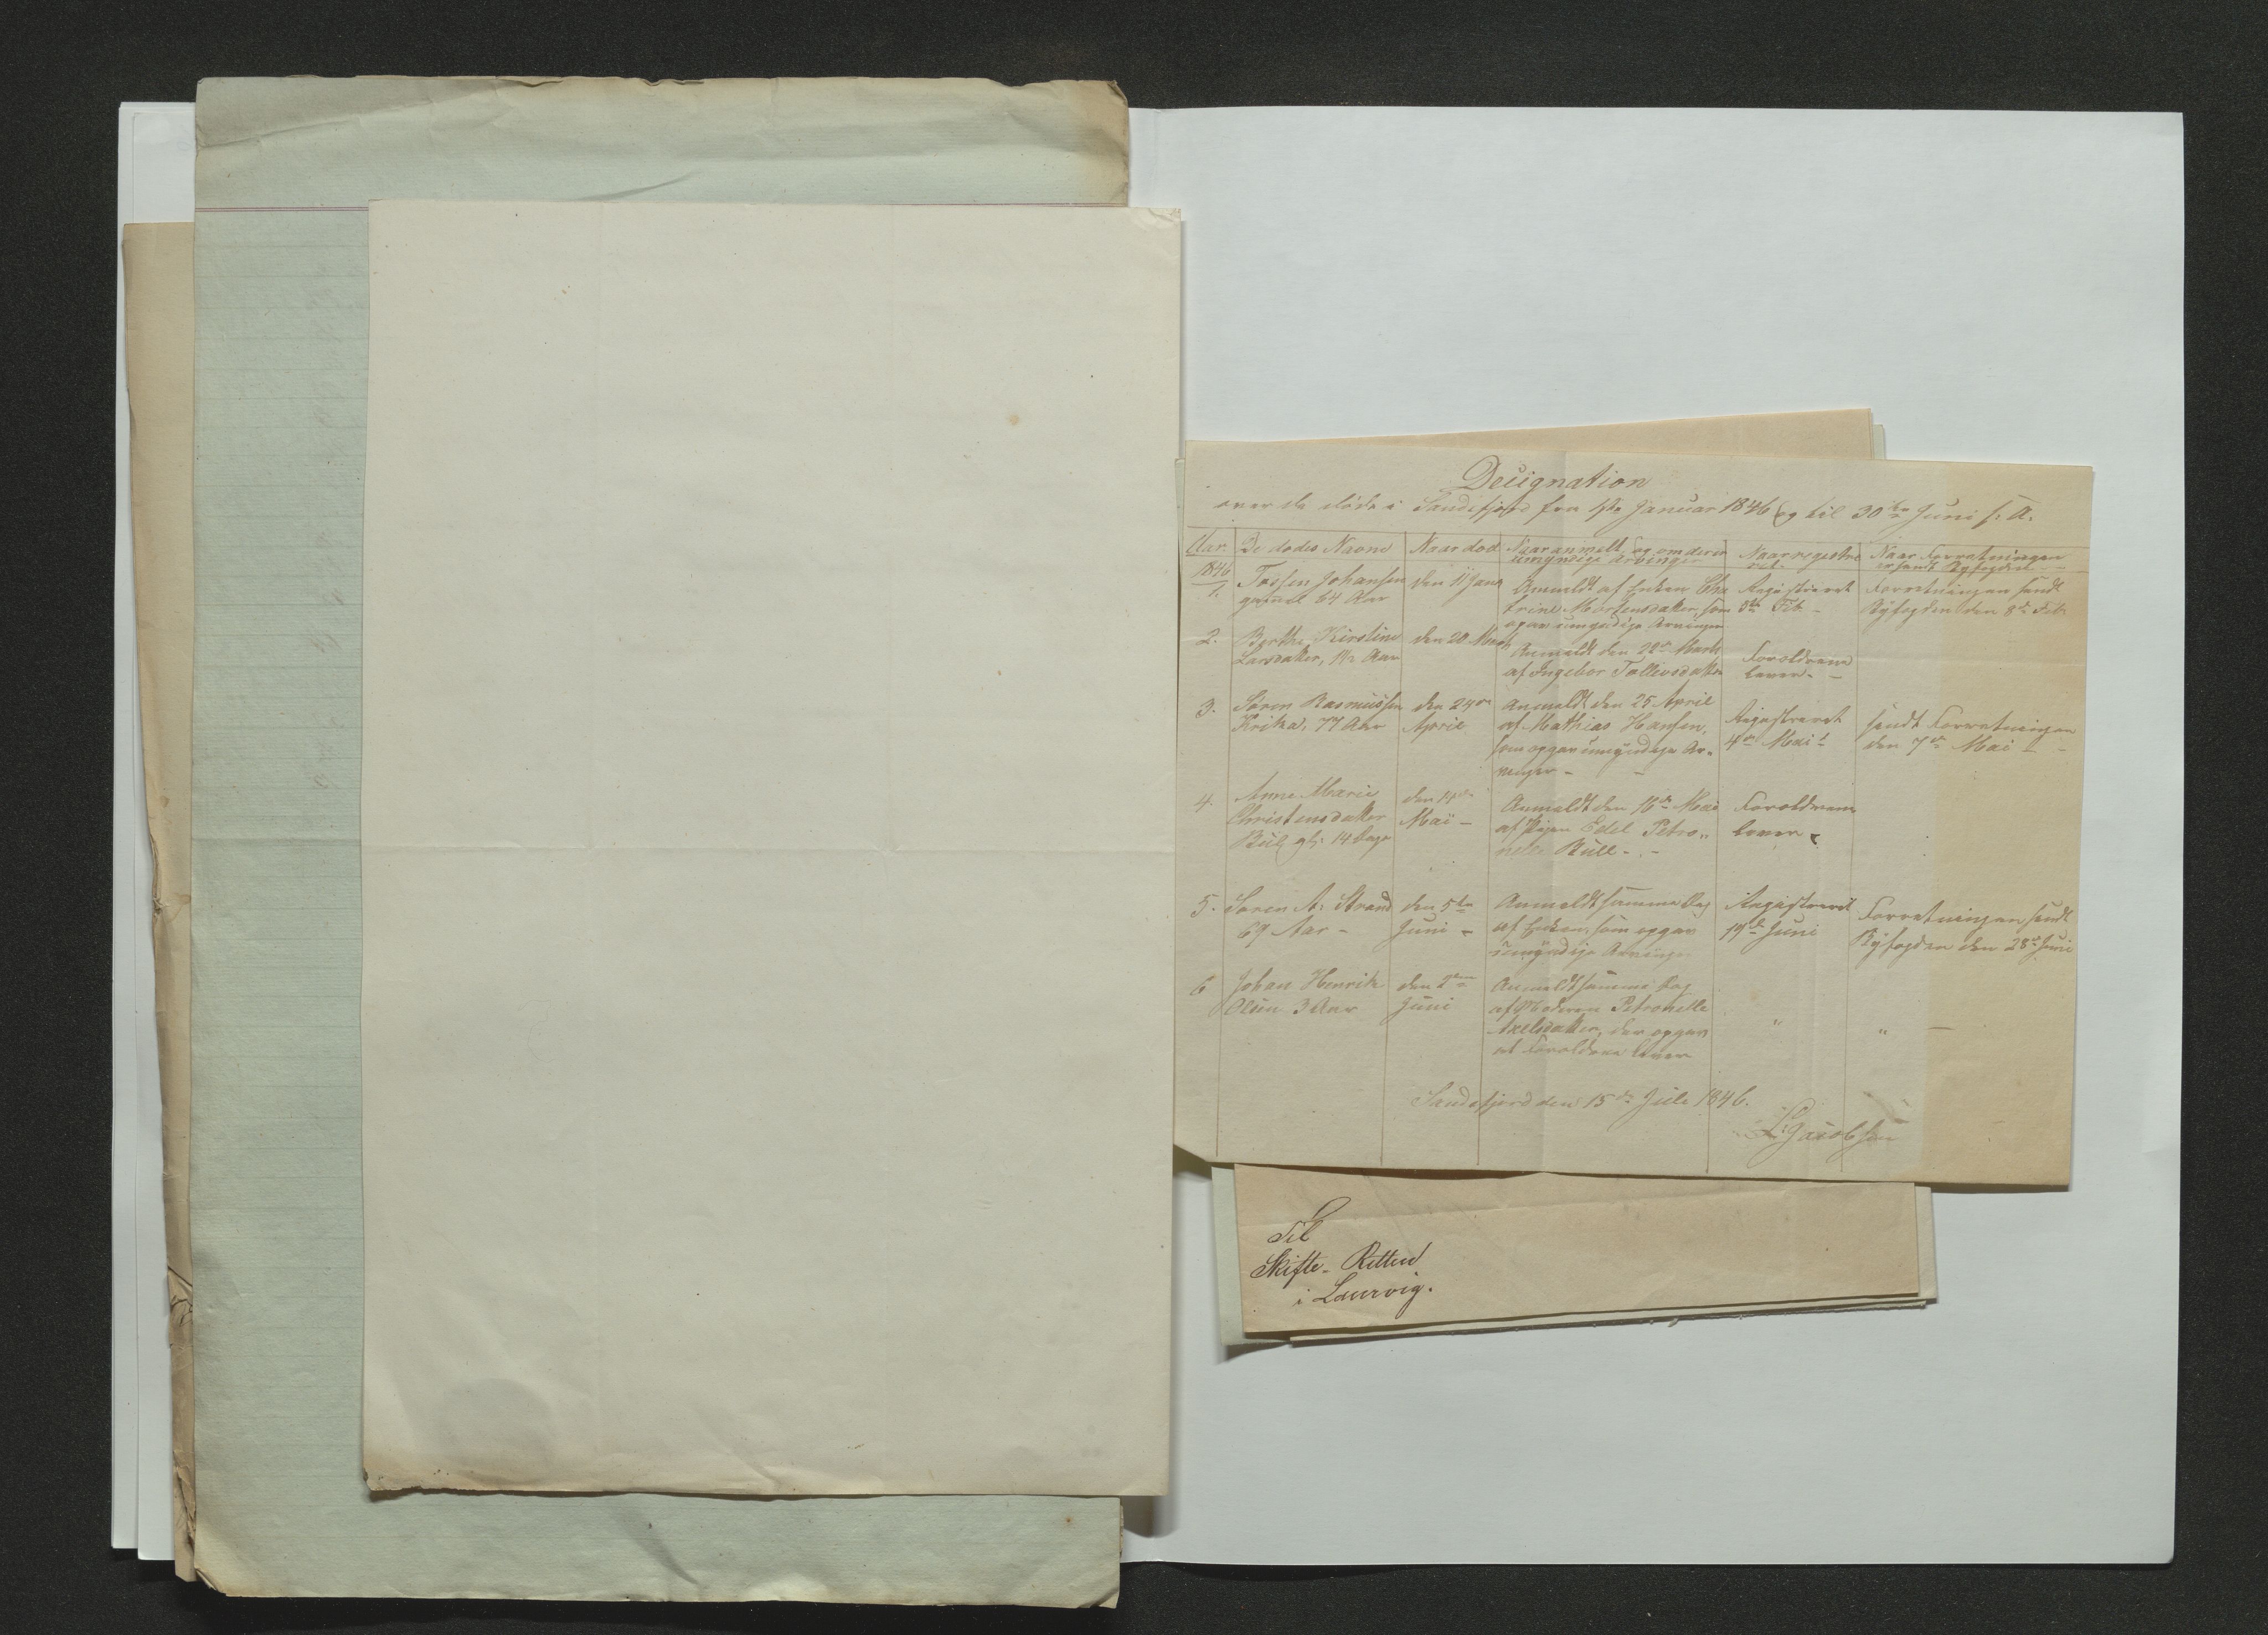 Designation
over de döde i Sandefjord fra 1ste Januar 1846 og til 30te Juni s: A:
Aar. De dødes Navne Naar död Naar anmelt, og om der er umyndige arvinger Naar registreret. Naar Forretningen er sendt Byfogden
1846
1. Johansen den 11 Janr Anmeldt af Enken Registreret Forretningen sendt
gammel 64 Aar Mortensdatter, som Feb. Byfogden den 8de Feb.
opgav umyndige Arvinger
2. Berthe Kirstine den 20 March Anmeldt den 22de March Foreldrene
Larsdatter, 1½ Aar af Ingebor Tallevsdatter lever.
3. Søren Rasmussen den 24de Anmeldt den 25 April Registreret sendt Forretningen
Krika, 77 Aar April af Mathias Hansen, 4de Mai den 7de Mai
som opgav umyndige Ar-
vinger
4. Anne Marie den Anmeldt den 16de Mai Foreldrene
Christensdatter Mai af Edel Petro„ lever
Bull gl: 14 Dage nelle Bull
5. Søren A: Strand den 5te Anmeldt samme Dag Registreret Forretningen sendt
69 Aar Juni af Enken, som opgav 19de Juni Byfogden den 28de Juni
umyndige Arvinger
6 Johan Henrik den Anmeldt samme Dag
Olsen 3 Aar Juni af Moderen Petronelle " "
Axelsdatter, der opgav
at Foreldrene lever
Sandefjord den 15de Juli 1846.
Jacobsen
Til
Skifte-Retten
i Laurvig.